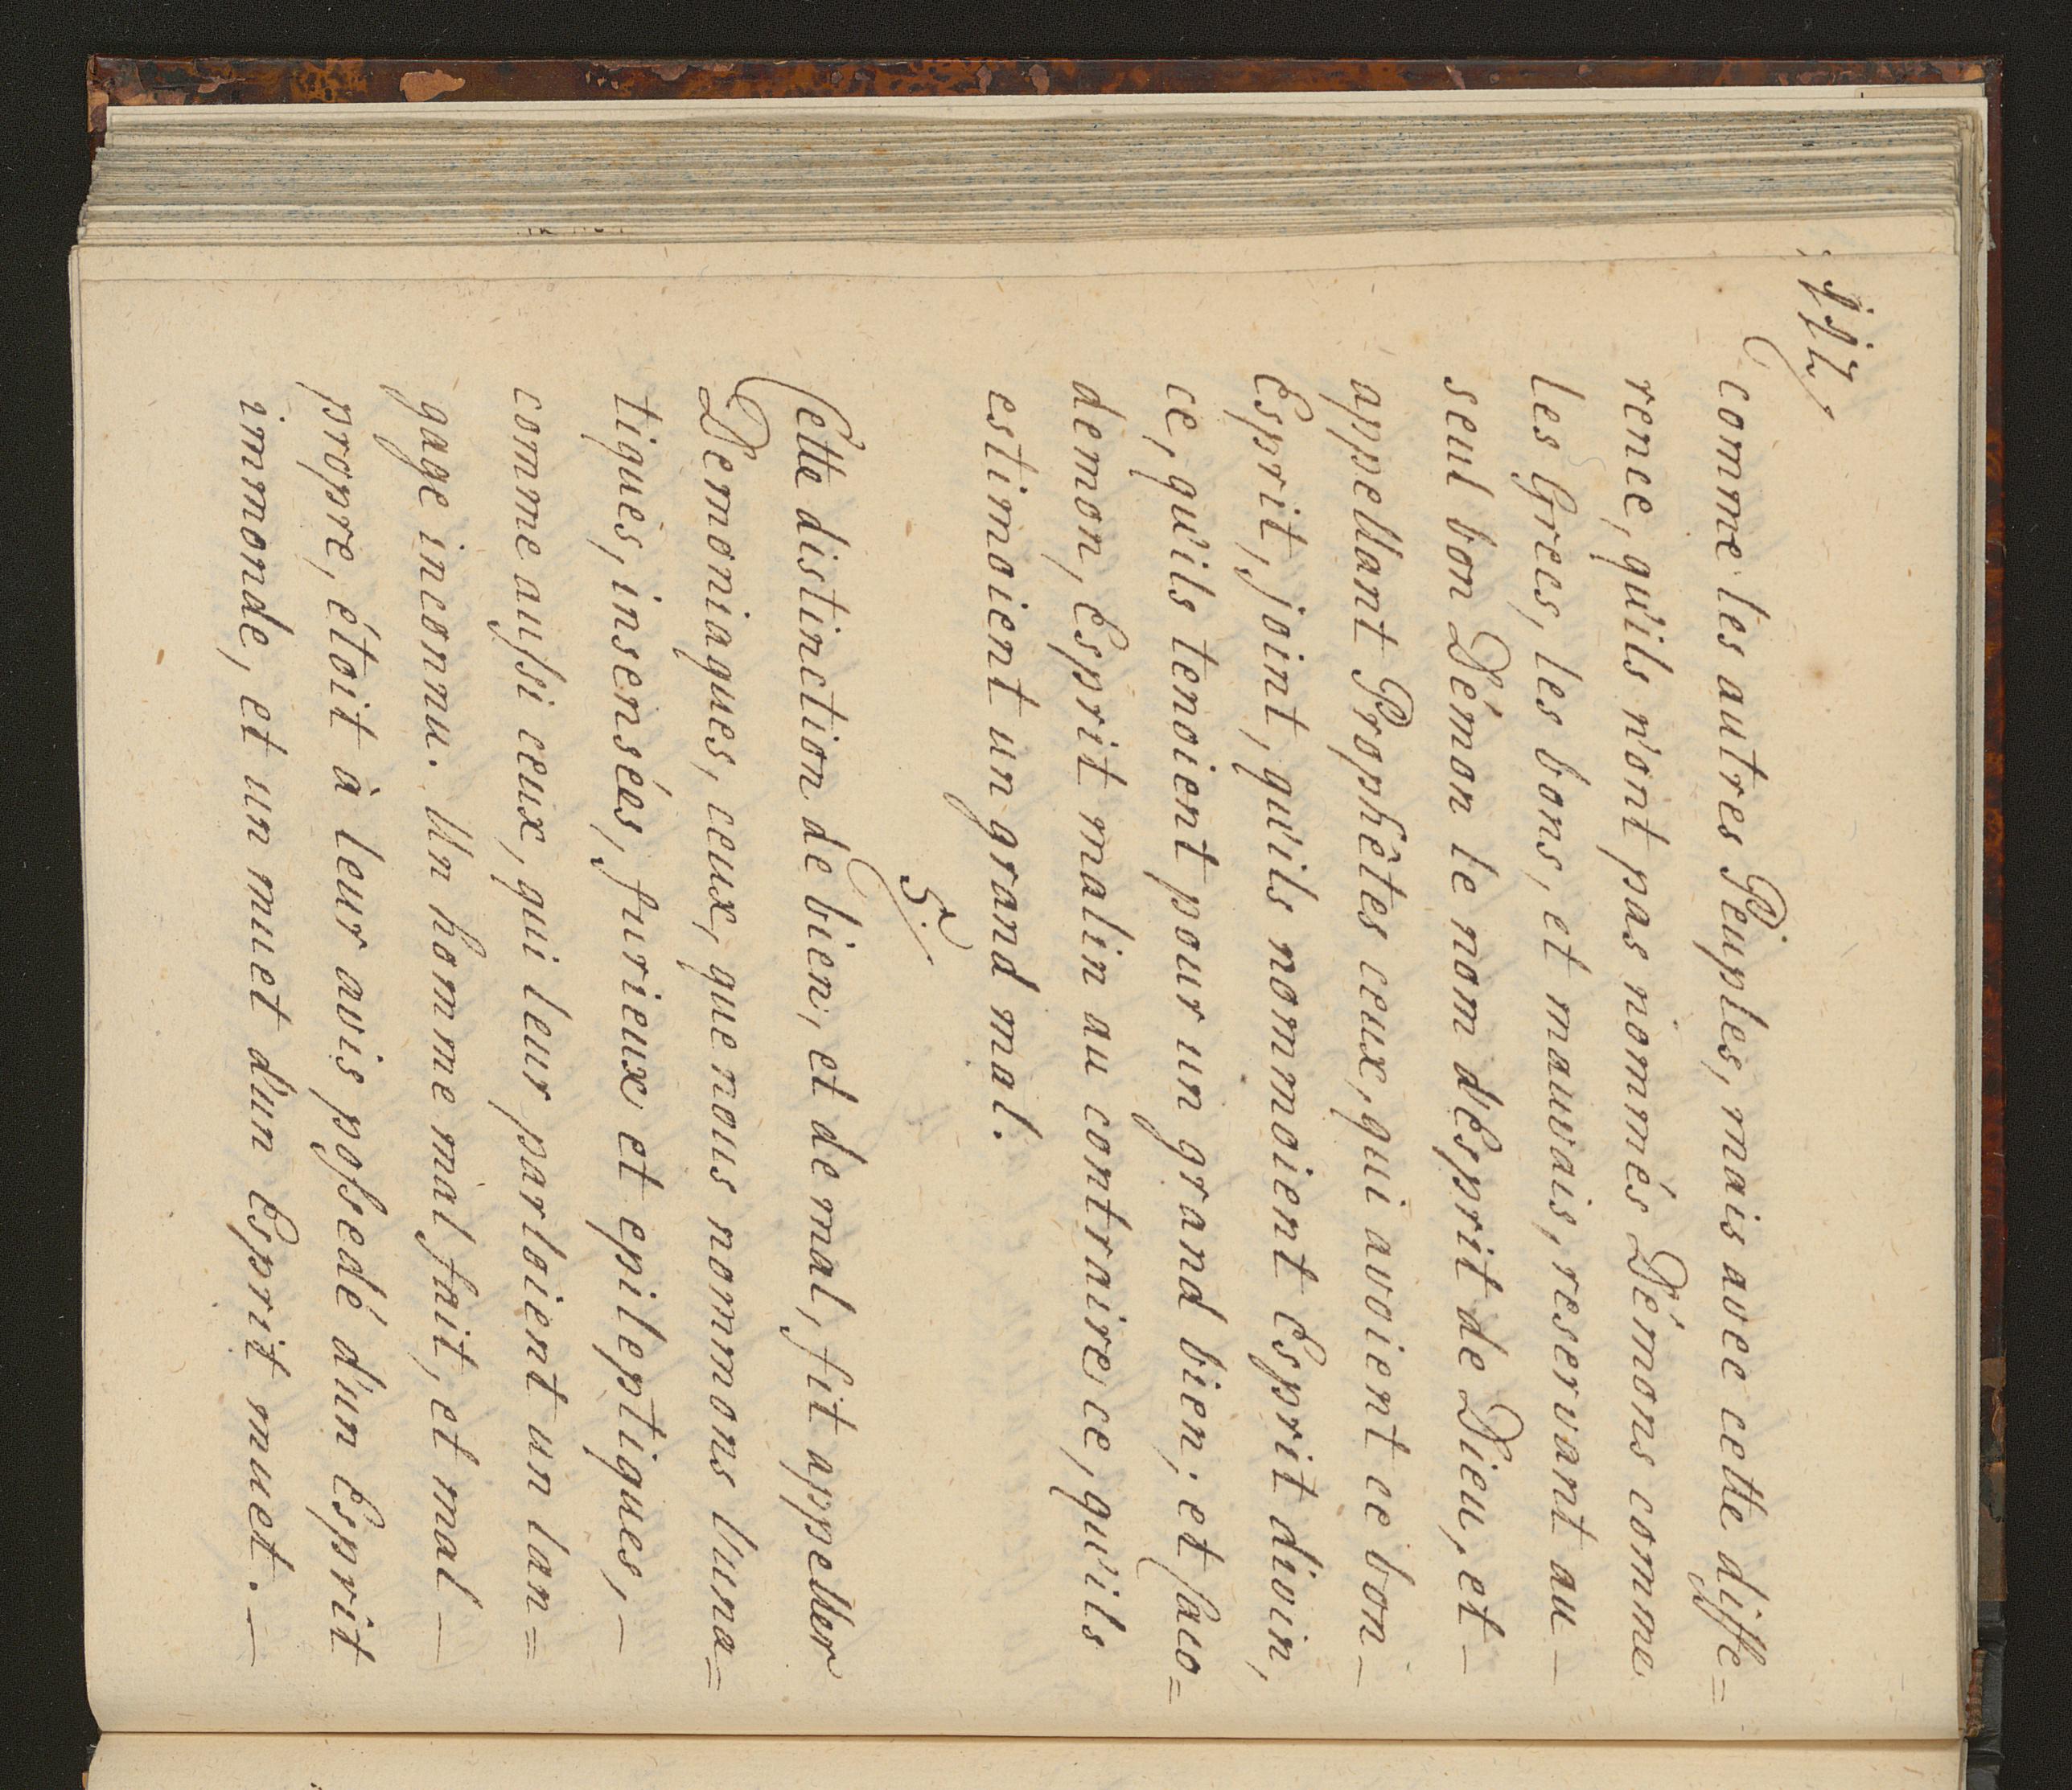 comme les autres Peuples, mais avec cette diffe=
rence, qu'ils n'ont pas nommés Démons comme
les Grecs, les bons, et mauvais, reservant au –
seul bon Démon le nom d'Esprit de Dieu, et –
appellant Prophêtes ceux, qui avoient ce bon –
Esprit, joint, qu'ils nommoient Esprit divin,
ce, qu'ils tenoient pour un grand bien; et Caco=
demon, Esprit malin au contraire, ce, qu'ils
estimoient un grand mal.
5.
Cette distinction de bien, et de mal, fit appeller
Demoniaques, ceux, que nous nommons Luna=
tiques, insensés, furieux et epileptiques, –
comme aussi ceux, qui leur parloient un lan=
gage inconnu. Un homme mal fait, et mal –
propre, étoit à leur avis possedé d'un Esprit
immonde, et un muet d'un Esprit muet. –